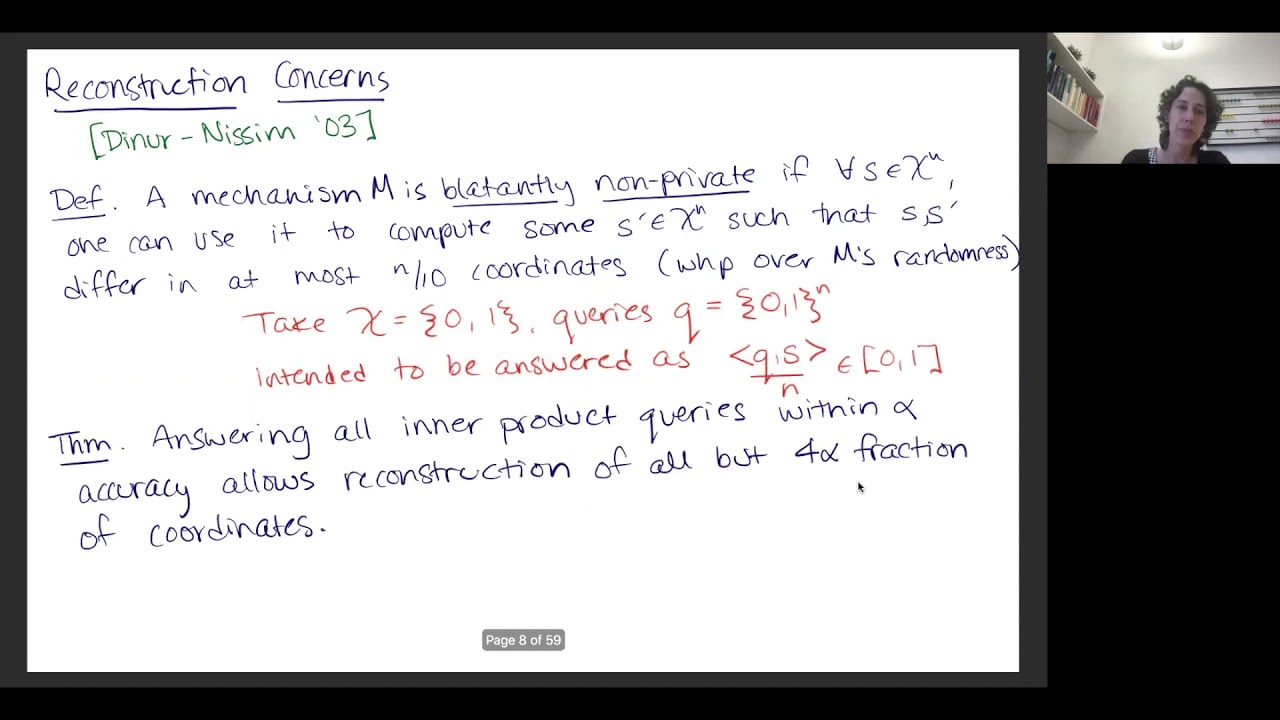 Reconstruction Concerns
[Dinur - Nissim '03]
Def. A mechanism M is blatantly non-private if ∀ s ∈ X^n,
one can use it to compute some s' ∈ X^n such that s,s'
differ in at most n/10 coordinates (whp over M's randomness)
Take X = {0,1}, queries q = {0,1}^n
intended to be answered as <q,s>/n ∈ [0,1]
Thm. Answering all inner product queries within α
accuracy allows reconstruction of all but 4α fraction
of coordinates.
Page 8 of 59